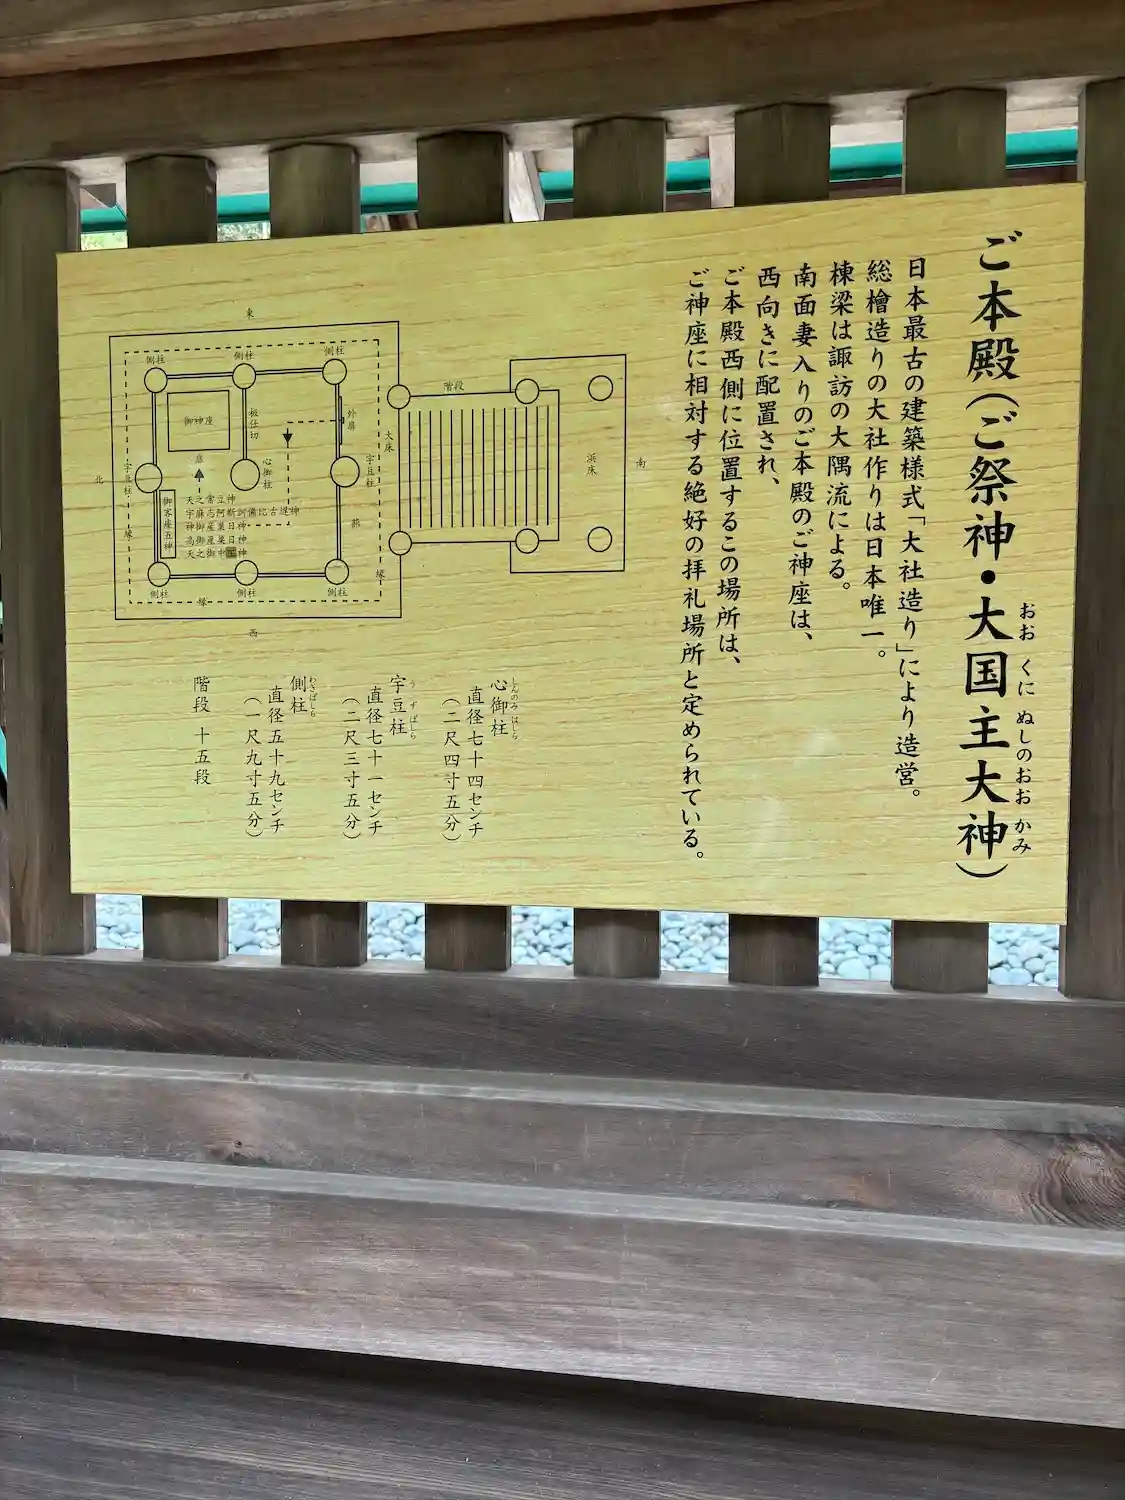 ご本殿(ご祭神・大国主大神)
おお くに ぬしのおお かみ
日本最古の建築様式「大社造り」により造営。
総檜造りの大社作りは日本唯一。
棟梁は諏訪の大隅流による。
南面妻入りのご本殿のご神座は、
西向きに配置され、
ご本殿西側に位置するこの場所は、
ご神座に相対する絶好の拝礼場所と定められている。
東
側柱
側柱
側柱
御神座
板仕切
外扉
大床
階段
浜床
南
北
宇豆柱
扉
心御柱
宇豆柱
御客座五神
天之常立神
宇麻志阿斯訶備比古遅神
神御産巣日神
高御産巣日神
天之御中主神
縁
縁
縁
側柱
側柱
側柱
西
心御柱
しんのみはしら
直径七十四センチ
(二尺四寸五分)
宇豆柱
うずばしら
直径七十一センチ
(二尺三寸五分)
側柱
わきばしら
直径五十九センチ
(一尺九寸五分)
階段 十五段